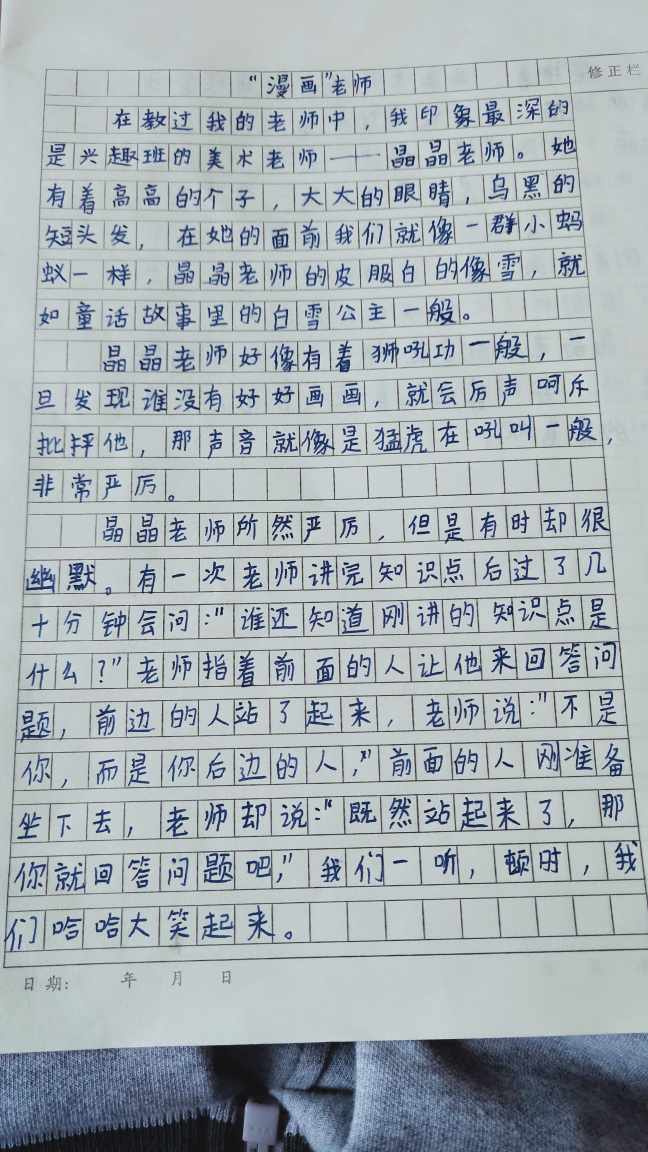 修正栏
"漫画"老师
在教过我的老师中，我印象最深的
是兴趣班的美术老师——晶晶老师。她
有着高高的个子，大大的眼睛，乌黑的
短头发，在她的面前我们就像一群小蚂
蚁一样，晶晶老师的皮服白的像雪，就
如童话故事里的白雪公主一般。
晶晶老师好像有着狮吼功一般，一
旦发现谁没有好好画画，就会厉声呵斥
批抨他，那声音就像是猛虎在吼叫一般，
非常严厉。
晶晶老师所然严厉，但是有时却很
幽默。有一次老师讲完知识点后过了几
十分钟会问："谁还知道刚讲的知识点是
什么？"老师指着前面的人让他来回答问
题，前边的人站了起来，老师说："不是
你，而是你后边的人，"前面的人刚准备
坐下去，老师却说："既然站起来了，那
你就回答问题吧，"我们一听，顿时，我
们哈哈大笑起来。
日期：　年　月　日